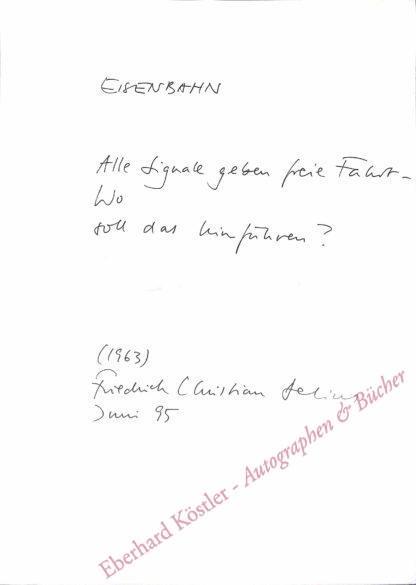 EISENBAHN
Alle Signale geben freie Fahrt –
Wo
soll das hinführen?
(1963)
Friedrich Christian Delius
Juni 95
Eberhard Köstler - Autographen & Bücher